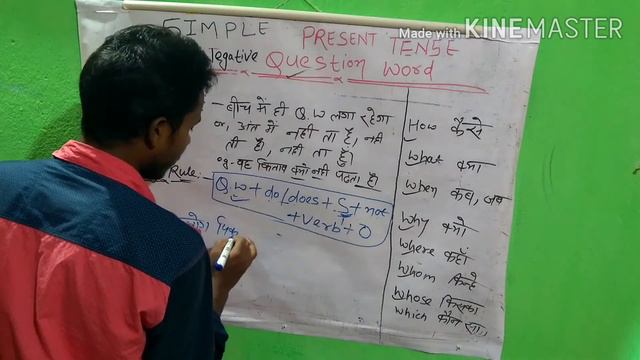 Made with KINEMASTER
SIMPLE PRESENT TENSE
Negative Question Word
- बीच में ही Q.W लगा रहेगा
or, अंत में नहीं ता है, नहीं
ती है, नहीं ता हूँ।
eg- वह किताब क्यों नहीं पढ़ता है।
Rule:-
Q.W + do/does + S + not
+ verb¹ + O
How कैसे
What क्या
When कब, जब
Why क्यों
Where कहाँ
Whom किन्हे
Whose किसका
Which कौन सा